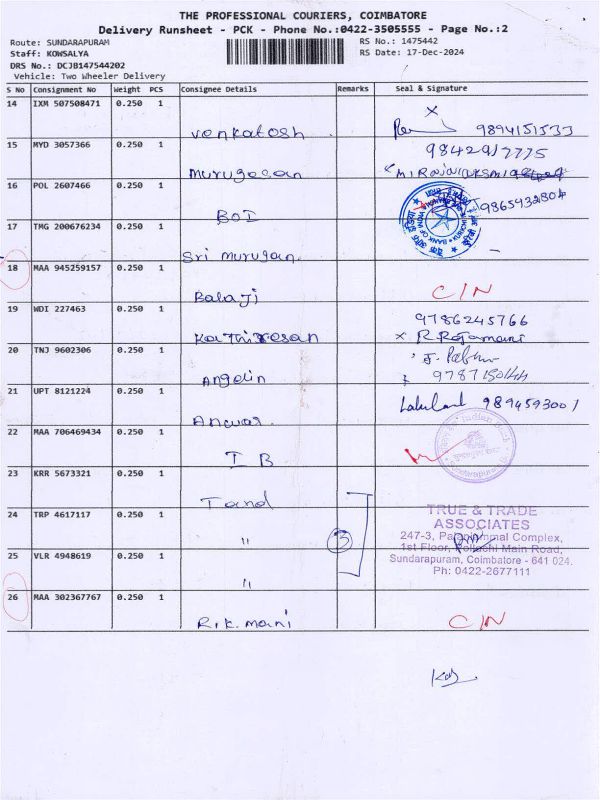 THE PROFESSIONAL COURIERS, COIMBATORE
Delivery Runsheet - PCK - Phone No.:0422-3505555 - Page No.:2
Route: SUNDARAPURAM
RS No.: 1475442
Staff: KOWSALYA
RS Date: 17-Dec-2024
DRS No.: DCJB147544202
Vehicle: Two Wheeler Delivery
S No Consignment No Weight PCS Consignee Details Remarks Seal & Signature
14 IXM 507508471 0.250 1
x
Venkatosh 9894151533
15 MYD 3057366 0.250 1
9842917775
Murugesan
16 POL 2607466 0.250 1
BOI 9865932804
17 TMG 200676234 0.250 1
Sri Murugan
18 MAA 945259157 0.250 1
Balaji C/N
19 WDI 227463 0.250 1
9786245766
Kathiresan x R. Rajamani
20 TNJ 9602306 0.250 1
Angelin
21 UPT 8121224 0.250 1
9894593001
Anwar
22 MAA 706469434 0.250 1
Indian Bank
Sundarapuram
IB
23 KRR 5673321 0.250 1
Tand
24 TRP 4617117 0.250 1
" 3
25 VLR 4948619 0.250 1
"
TRUE & TRADE
ASSOCIATES
247-3, Palaniammal Complex,
1st Floor, Pollachi Main Road,
Sundarapuram, Coimbatore - 641 024.
Ph: 0422-2677111
26 MAA 302367767 0.250 1
R.K. Mani C/N